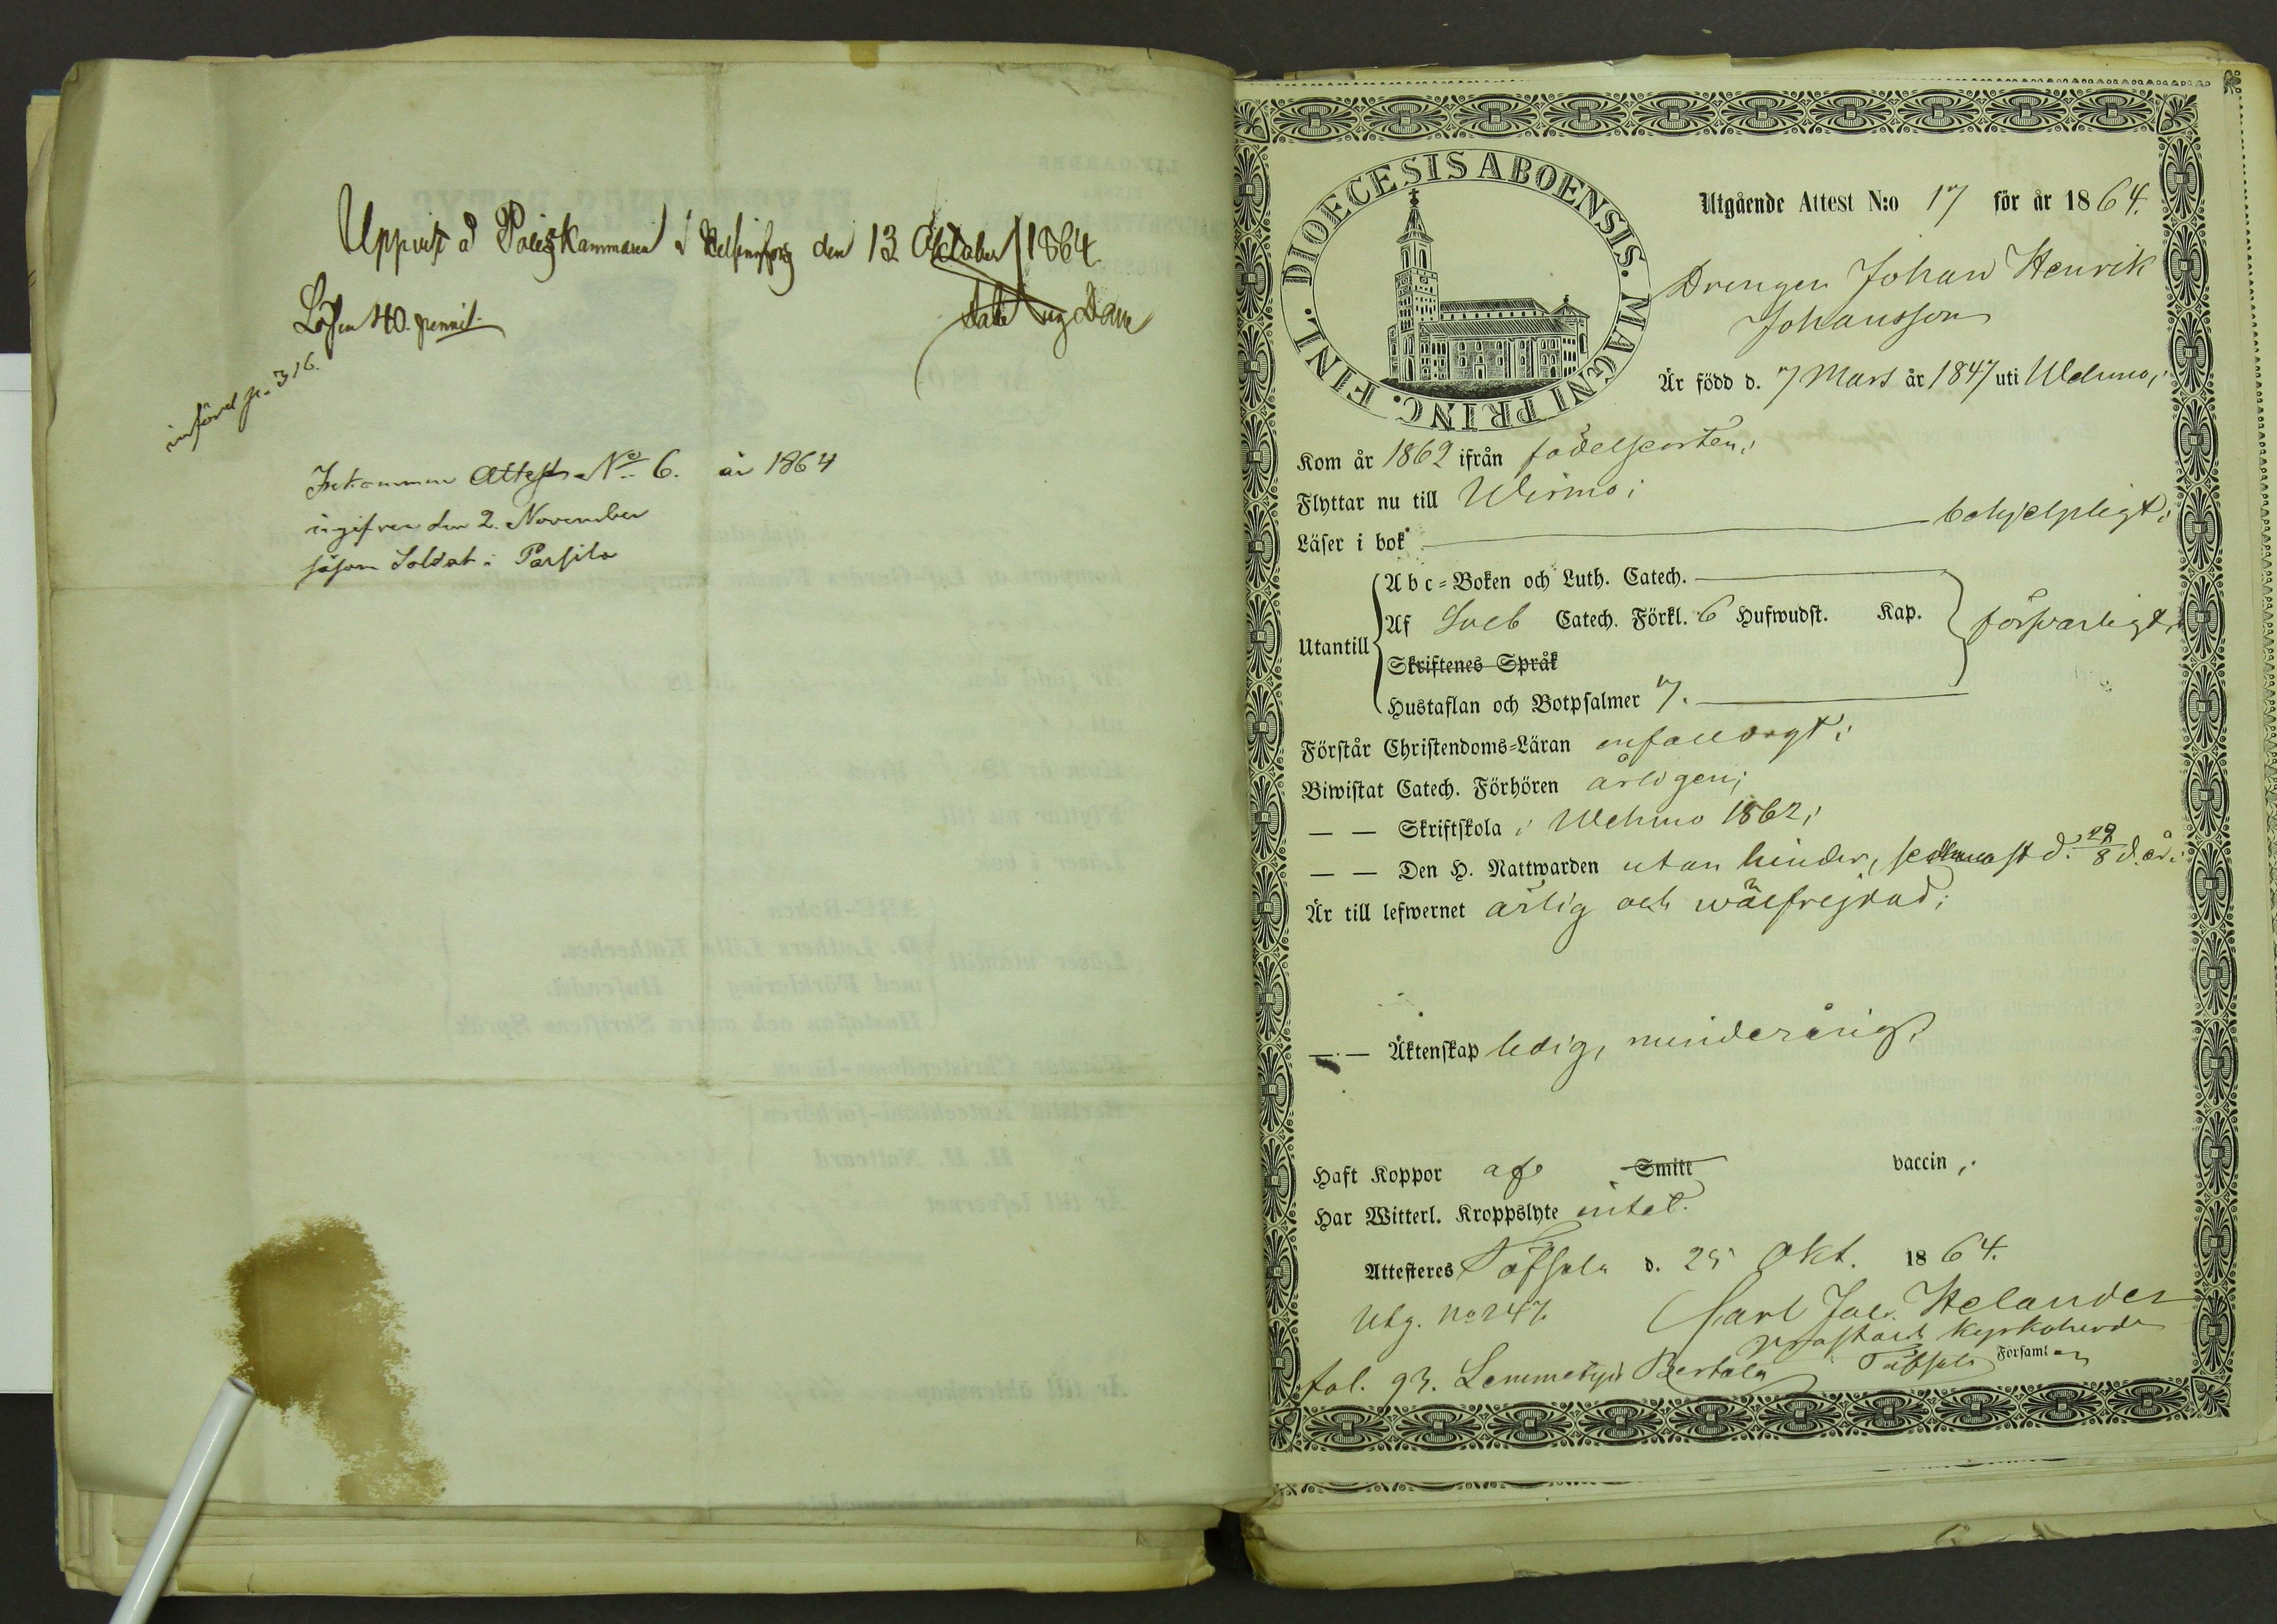 Uppvist å PoliesKammaren i Helsingfors den 13 Oktober 1864.
Lösen 40. penni.
införd p. 316.
Inkommen Attest No 6. år 1864
ingifven den 2. November
såsom Soldat i Parsila
DIOECESIS ABOENSIS. MAGNI PRINC. FINL.
Utgående Attest N:o 17 för år 1864.
Drengen Johan Henrik
Johansson
Är född d. 7 Mars år 1847 uti Wehmo;
Kom år 1862 ifrån födelseorten;
Flyttar nu till Wirmo;
Läser i bok behjelpligt;
Utantill
Abc-Boken och Luth. Catech.
Af Sveb Catech. Förkl. 6 Hufwudst. Kap.
försvarligt;
Skriftenes Språk
Hustaflan och Botpsalmer 7.
Förstår Christendoms-Läran enfaldigt;
Biwistat Catech. Förhören årligen;
— — Skriftskola i Wehmo 1862;
— — Den H. Nattwarden utan hinder, sednast d. 28/8 d. år;
Är till lefwernet ärlig och wälfrejdad;
— — Äktenskap ledig, minderårig.
Haft Koppor af Smitt vaccin;
Har Witterl. Kroppslyte intet.
Attesteres Töfsala d. 25 Okt. 1864.
Utg. No 247. Carl Jac. Helander
Prost och Kyrkoherde
fol. 93. Lemmetyis Bertala i Töfsala Församl